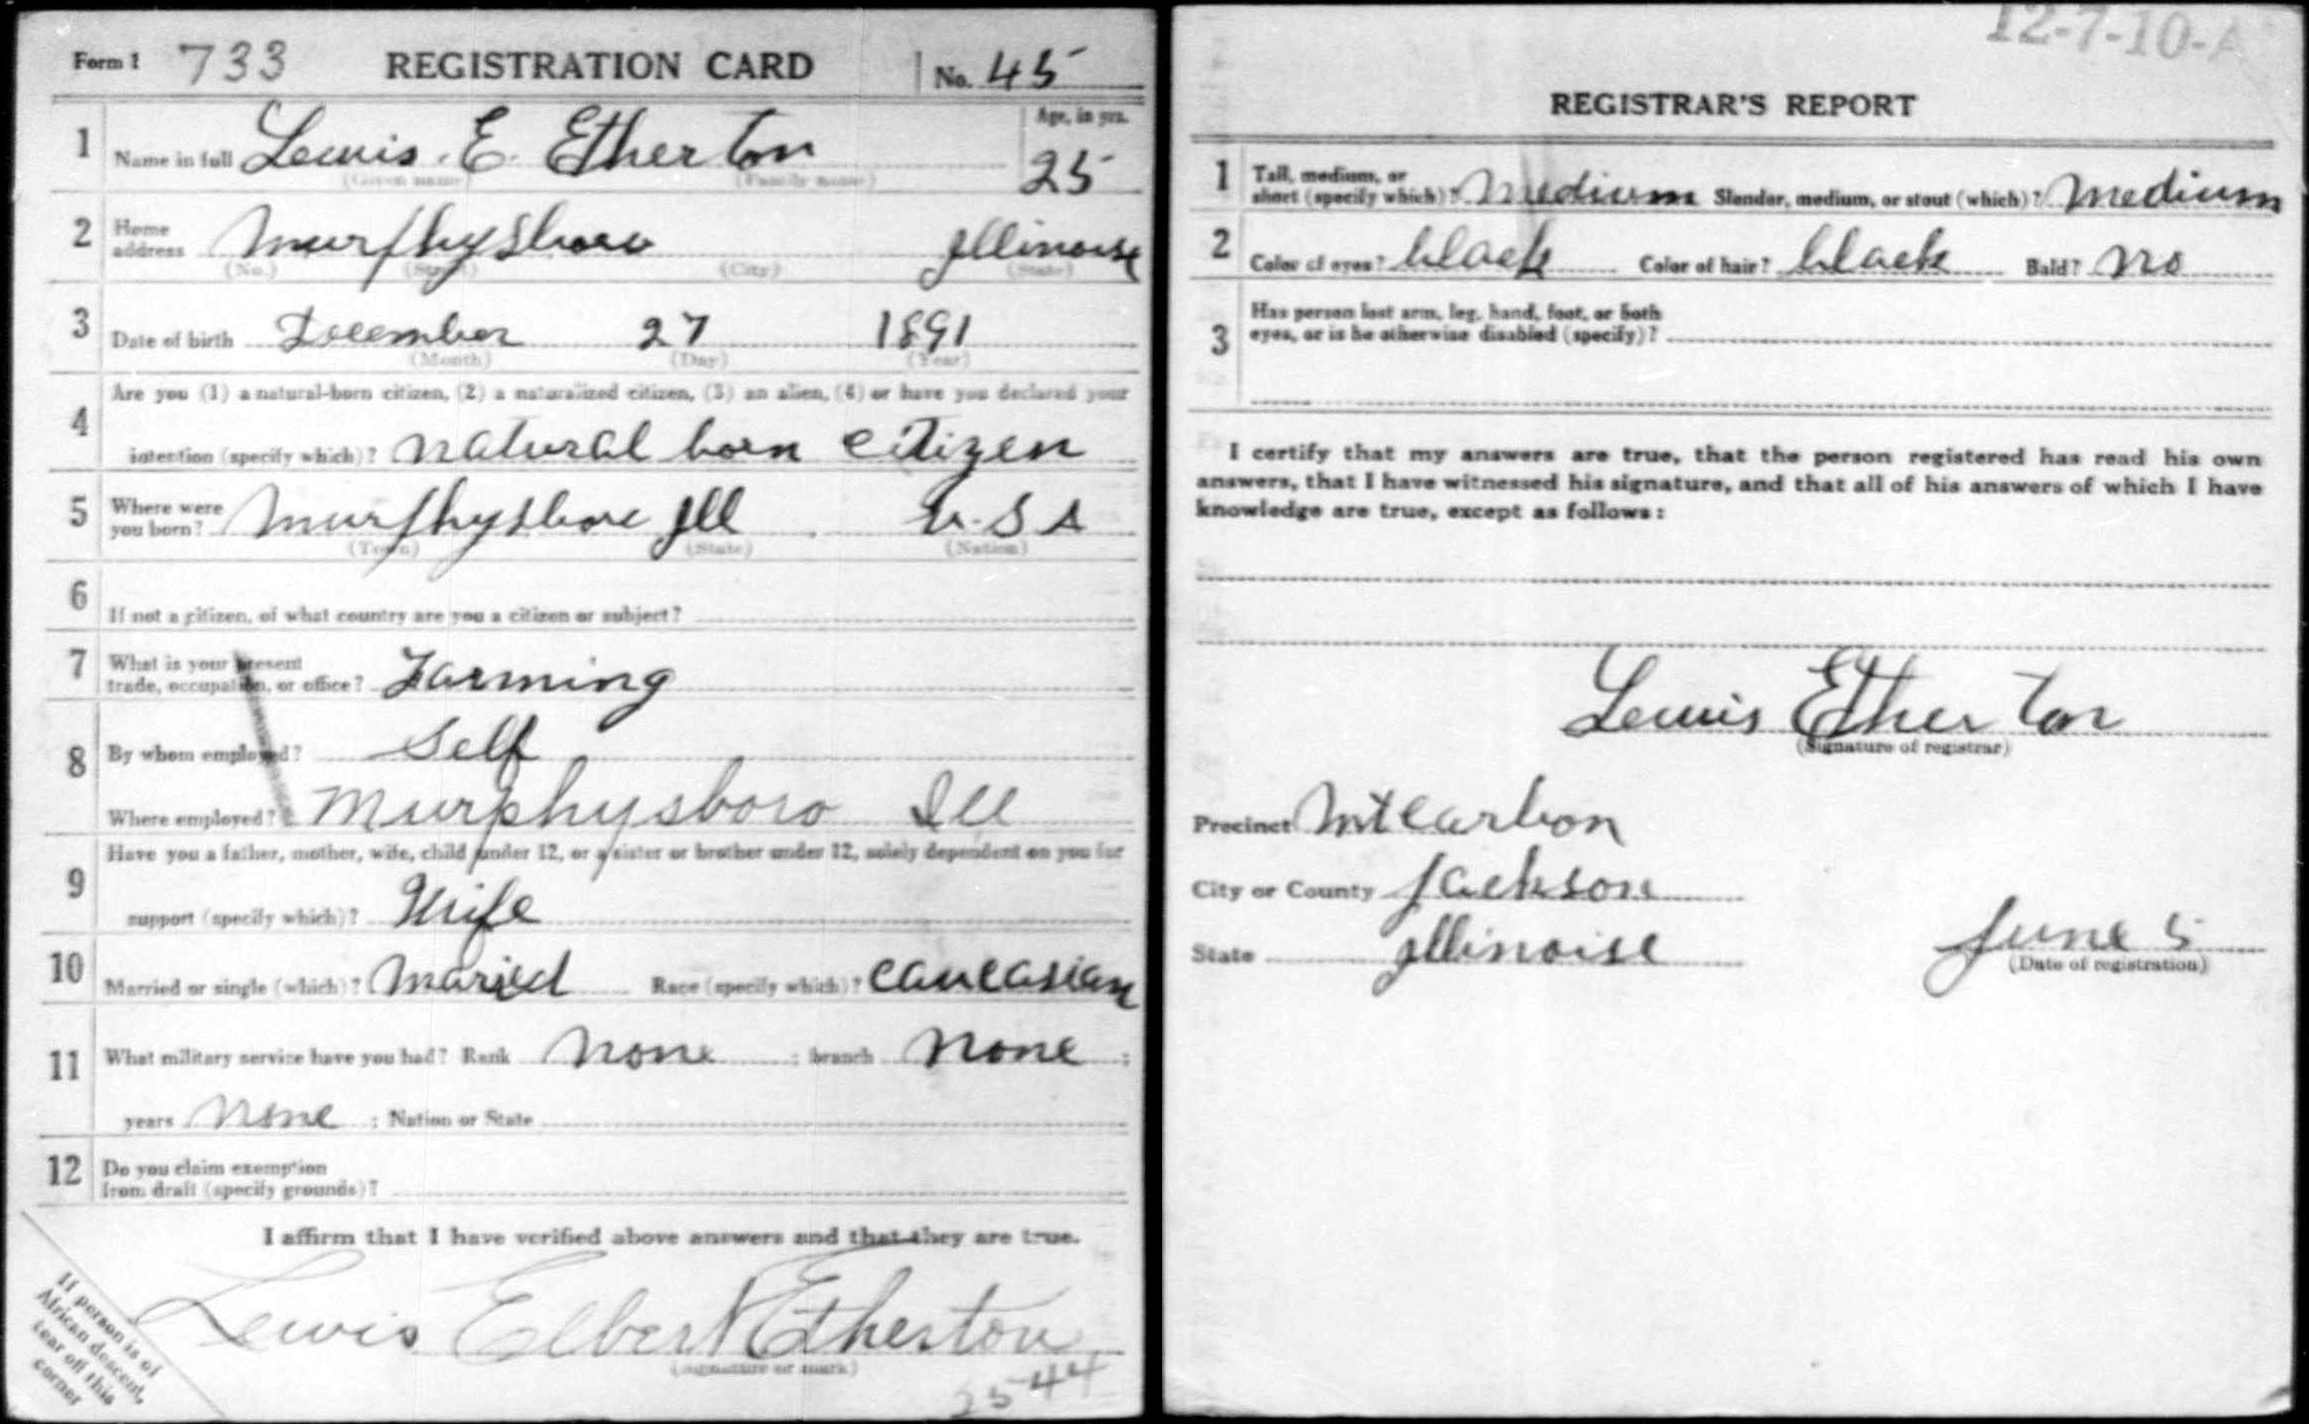 Form 1 733 REGISTRATION CARD No. 45
1 Name in full Lewis. E. Etherton Age, in yrs.
(Given name) (Family name) 25
2 Home address Murphysboro Illinoise
(No.) (Street) (City) (State)
3 Date of birth December 27 1891
(Month) (Day) (Year)
4 Are you (1) a natural-born citizen, (2) a naturalized citizen, (3) an alien, (4) or have you declared your
intention (specify which)? natural born citizen
5 Where were you born? Murphysboro Ill U.S A
(Town) (State) (Nation)
6 If not a citizen, of what country are you a citizen or subject?
7 What is your present
trade, occupation, or office? Farming
8 By whom employed? Self
Where employed? Murphysboro Ill
9 Have you a father, mother, wife, child under 12, or a sister or brother under 12, solely dependent on you for
support (specify which)? Wife
10 Married or single (which)? Maried Race (specify which)? Caucasian
11 What military service have you had? Rank none ; branch none ;
years none ; Nation or State
12 Do you claim exemption
from draft (specify grounds)?
I affirm that I have verified above answers and that they are true.
Lewis Elbert Etherton
(Signature or mark)
2544
If person is of
African descent,
tear off this
corner
12-7-10-A
REGISTRAR'S REPORT
1 Tall, medium, or
short (specify which)? Medium Slender, medium, or stout (which)? Medium
2 Color of eyes? black Color of hair? black Bald? no
3 Has person lost arm, leg, hand, foot, or both
eyes, or is he otherwise disabled (specify)?
I certify that my answers are true, that the person registered has read his own
answers, that I have witnessed his signature, and that all of his answers of which I have
knowledge are true, except as follows:
Lewis Etherton
(Signature of registrar)
Precinct Mt Carbon
City or County Jackson
State Illinoise June 5
(Date of registration)